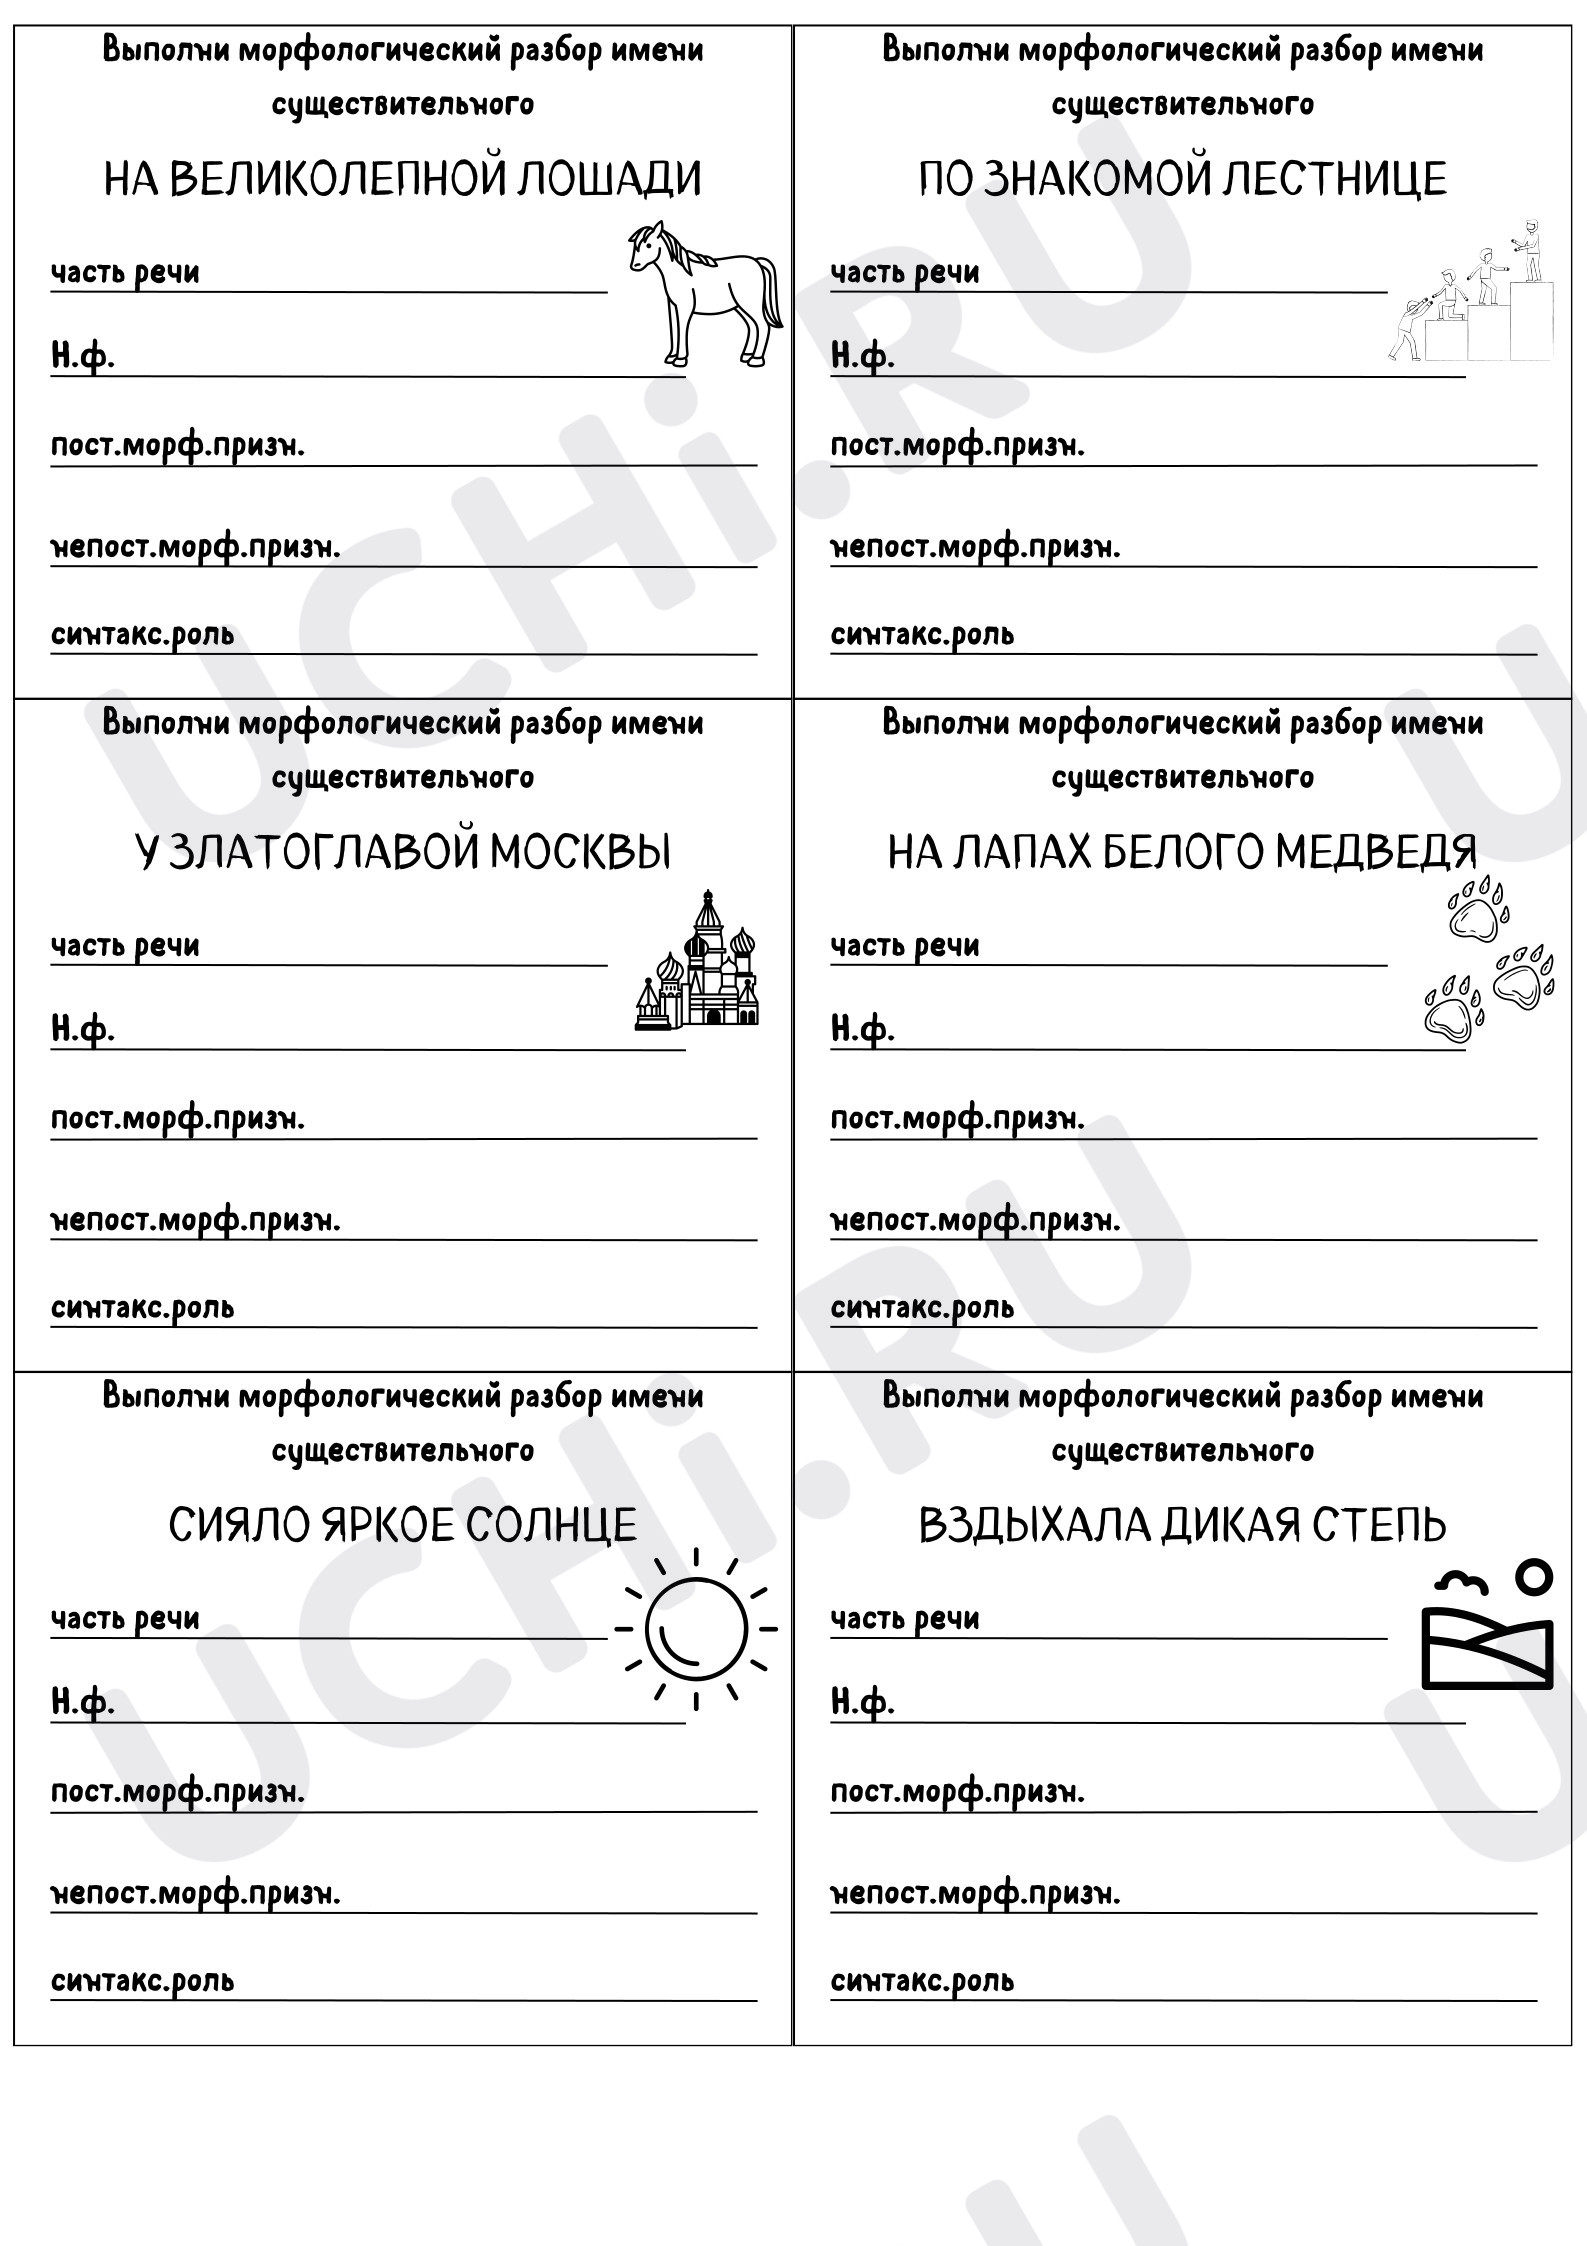 Выполни морфологический разбор имени
существительного
НА ВЕЛИКОЛЕПНОЙ ЛОШАДИ
часть речи
Н.ф.
пост.морф.призн.
непост.морф.призн.
синтакс.роль
Выполни морфологический разбор имени
существительного
ПО ЗНАКОМОЙ ЛЕСТНИЦЕ
часть речи
Н.ф.
пост.морф.призн.
непост.морф.призн.
синтакс.роль
Выполни морфологический разбор имени
существительного
У ЗЛАТОГЛАВОЙ МОСКВЫ
часть речи
Н.ф.
пост.морф.призн.
непост.морф.призн.
синтакс.роль
Выполни морфологический разбор имени
существительного
НА ЛАПАХ БЕЛОГО МЕДВЕДЯ
часть речи
Н.ф.
пост.морф.призн.
непост.морф.призн.
синтакс.роль
Выполни морфологический разбор имени
существительного
СИЯЛО ЯРКОЕ СОЛНЦЕ
часть речи
Н.ф.
пост.морф.призн.
непост.морф.призн.
синтакс.роль
Выполни морфологический разбор имени
существительного
ВЗДЫХАЛА ДИКАЯ СТЕПЬ
часть речи
Н.ф.
пост.морф.призн.
непост.морф.призн.
синтакс.роль
UCHi.RU
UCHi.RU